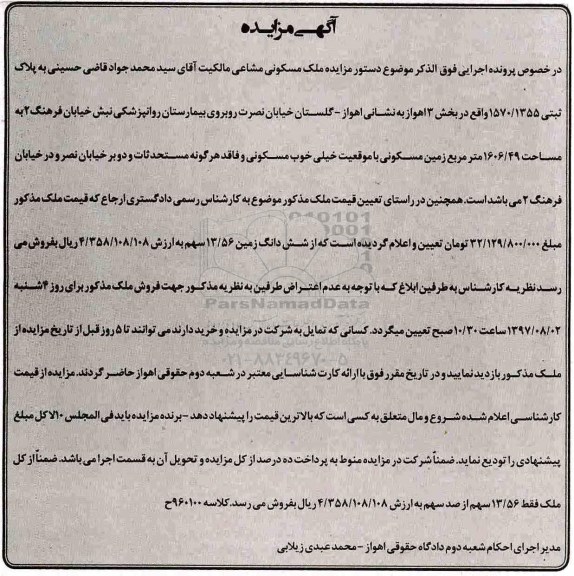 آگهی مزایده
در خصوص پرونده اجرایی فوق الذکر موضوع دستور مزایده ملک مسکونی مشاعی مالکیت آقای سید محمد جواد قاضی حسینی به پلاک
ثبتی ۱۵۷۰/۱۳۵۵ واقع در بخش ۳ اهواز به نشانی اهواز - گلستان خیابان نصرت روبروی بیمارستان روانپزشکی نبش خیابان فرهنگ ۲ به
مساحت ۱۶۰۶/۴۹ متر مربع زمین مسکونی با موقعیت خیلی خوب مسکونی و فاقد هرگونه مستحدثات و دو بر خیابان نصر و در خیابان
فرهنگ ۲ می باشد است. همچنین در راستای تعیین قیمت ملک مذکور موضوع به کارشناس رسمی دادگستری ارجاع که قیمت ملک مذکور
مبلغ ۳۲/۱۲۹/۸۰۰/۰۰۰ تومان تعیین و اعلام گردیده است که از شش دانگ زمین ۱۳/۵۶ سهم به ارزش ۴/۳۵۸/۱۰۸/۱۰۸ ریال بفروش می
رسد نظریه کارشناس به طرفین ابلاغ که با توجه به عدم اعتراض طرفین به نظریه مذکور جهت فروش ملک مذکور برای روز ۴ شنبه
ParsNamadData
۱۳۹۷/۰۸/۰۲ ساعت ۱۰/۳۰ صبح تعیین میگردد. کسانی که تمایل به شرکت در مزایده و خرید دارند می توانند تا ۵ روز قبل از تاریخ مزایده از
پایگاه اطلاع رسانی مناقصه و مزایده
ملک مذکور بازدید نمایید و در تاریخ مقرر فوق با ارائه کارت شناسایی معتبر در شعبه دوم حقوقی اهواز حاضر گردند. مزایده از قیمت
۰۲۱-۸۸۳۴۹۶۷۰-۵
کارشناسی اعلام شده شروع و مال متعلق به کسی است که بالاترین قیمت را پیشنهاد دهد - برنده مزایده باید فی المجلس ۱۰٪ کل مبلغ
پیشنهادی را تودیع نماید. ضمناً شرکت در مزایده منوط به پرداخت ده درصد از کل مزایده و تحویل آن به قسمت اجرا می باشد. ضمناً از کل
ملک فقط ۱۳/۵۶ سهم از صد سهم به ارزش ۴/۳۵۸/۱۰۸/۱۰۸ ریال بفروش می رسد. کلاسه ۹۶۰۱۰۰ح
مدیر اجرای احکام شعبه دوم دادگاه حقوقی اهواز - محمد عبدی زیلابی